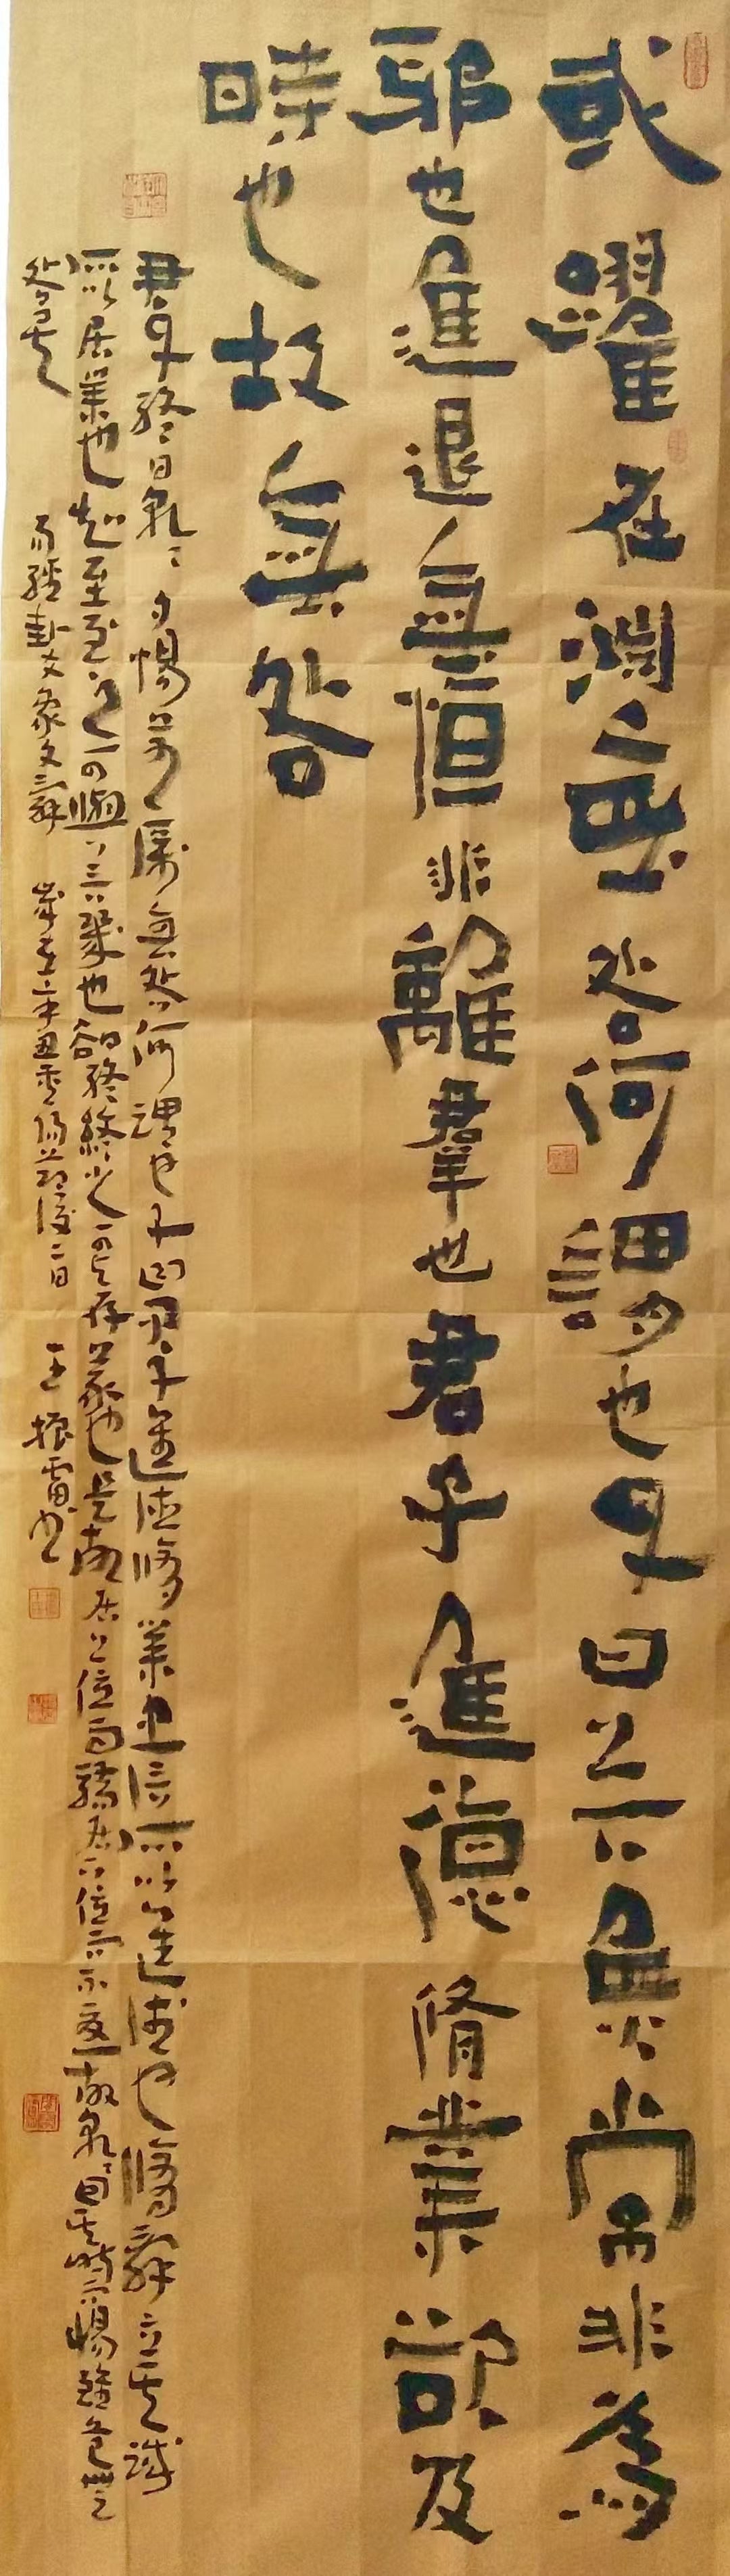 或躍在淵無咎何謂也子曰上下無常非為
邪也進退無恒非離羣也君子進德脩業欲及
時也故無咎
君子終日乾乾夕惕若厲無咎何謂也子曰君子進德脩業忠信所以進德也脩辭立其誠
所以居業也知至至之可與言幾也知終終之可與存義也是故居上位而驕居下位而不憂故乾乾因其時而惕雖危無
咎矣
易經卦文象文辭 歲在辛丑重陽節後二日 王振雷書